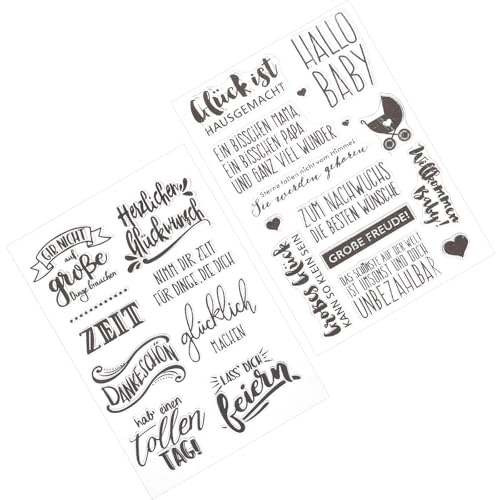 GIB NICHT
auf
große
Dinge brauchen
Herzlichen
Glückwunsch
ZEIT
NIMM DIR ZEIT
FÜR DINGE, DIE DICH
glücklich
MACHEN
DANKESCHÖN
hab einen
tollen
TAG!
LASS' DICH
feiern.
Glück ist
HAUSGEMACHT
HALLO
BABY
EIN BISSCHEN MAMA,
EIN BISSCHEN PAPA
UND GANZ VIEL WUNDER
Sterne fallen nicht vom Himmel
Sie werden geboren
Willkommen
Baby!
ZUM NACHWUCHS
DIE BESTEN WÜNSCHE
GROßE FREUDE!
Großes Glück
KANN SO KLEIN SEIN
DAS SCHÖNSTE AUF DER WELT
IST UMSONST UND DOCH
UNBEZAHLBAR